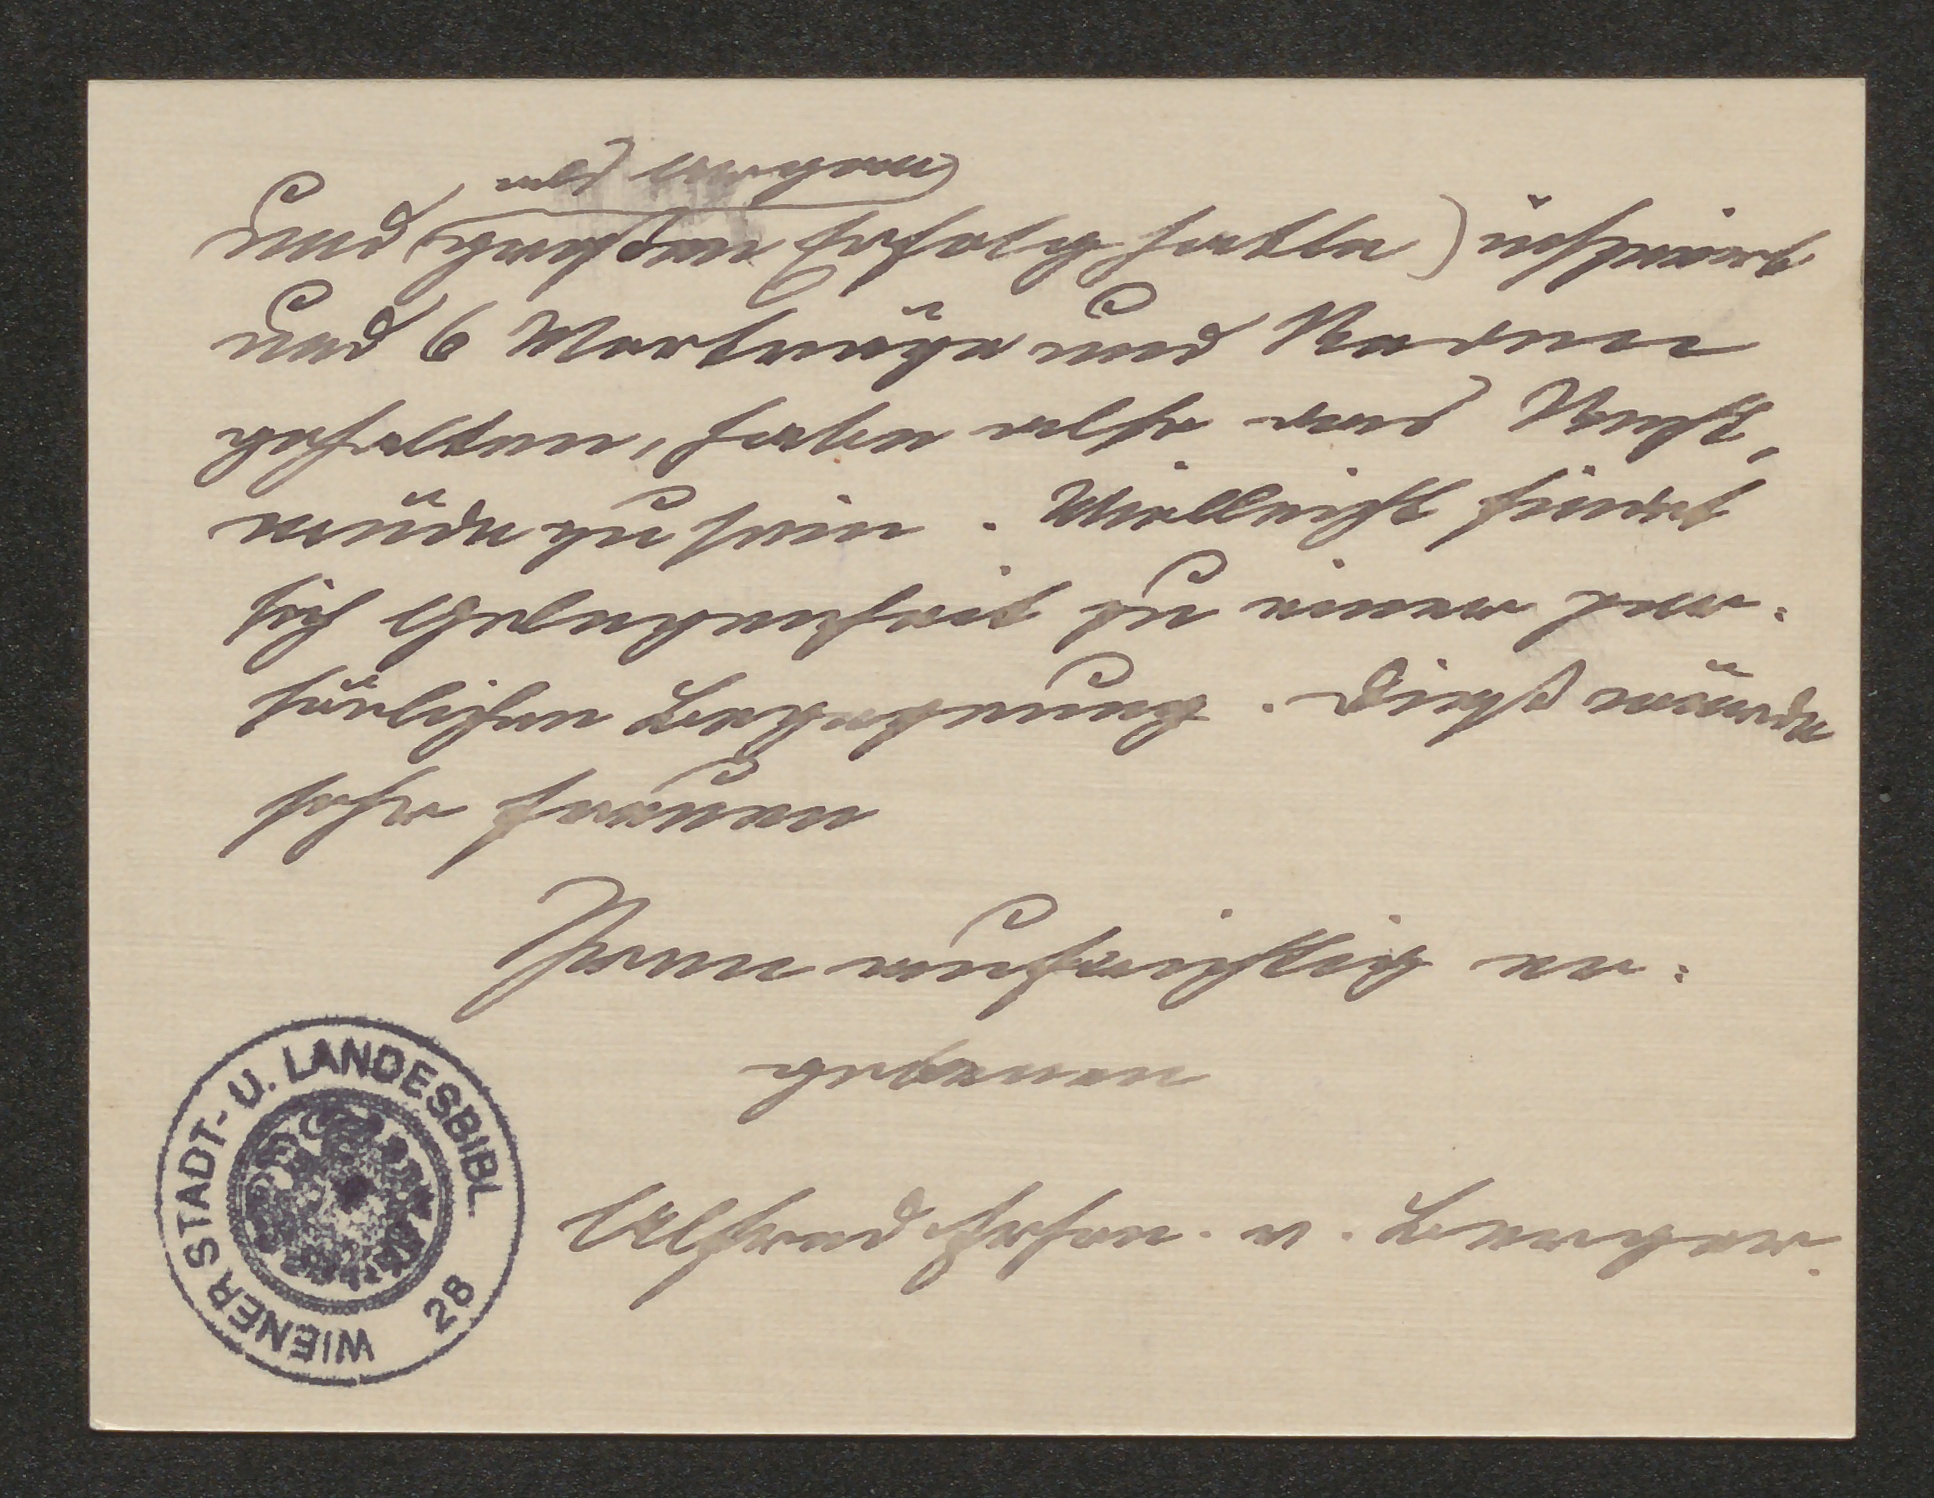 und (großen Erfolg hatte) inscenirt
und 6 Vorträge und Reden
gehalten, habe also das Recht,
müde zu sein. Vielleicht findet
sich Gelegenheit zu einer per-
sönlichen Begegnung. Dieß würde
sehr freuen
Ihren aufrichtig er-
gebenen
Alfred Frhrn. v. Berger.
WIENER STADT- U. LANDESBIBL.
28